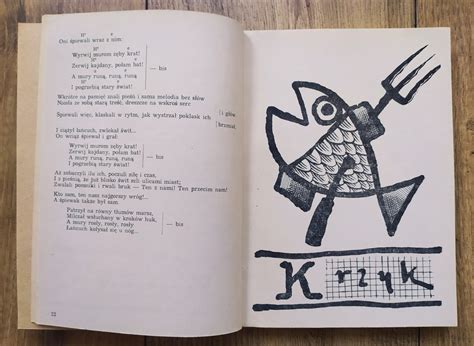 H⁷ e
Oni śpiewali wraz z nim:
H⁷ e
Wyrwij murom zęby krat!
H⁷ e
Zerwij kajdany, połam bat!
A mury runą, runą, runą
I pogrzebią stary świat!
— bis
Wkrótce na pamięć znali pieśń i sama melodia bez słów
Niosła ze sobą starą treść, dreszcze na wskroś serc i głów.
Śpiewali więc, klaskali w rytm, jak wystrzał poklask ich brzmiał,
I ciążył łańcuch, zwlekał świt...
On wciąż śpiewał i grał:
Wyrwij murom zęby krat!
Zerwij kajdany, połam bat!
A mury runą, runą, runą
I pogrzebią stary świat!
— bis
Aż zobaczyli ilu ich, poczuli siłę i czas,
I z pieśnią, że już blisko świt szli ulicami miast;
Zwalali pomniki i rwali bruk — Ten z nami! Ten przeciw nam!
Kto sam, ten nasz najgorszy wróg!...
A śpiewak także był sam.
Patrzył na równy tłumów marsz,
Milczał wsłuchany w kroków huk,
A mury rosły, rosły, rosły
Łańcuch kołysał się u nóg...
— bis
22
Krzyk